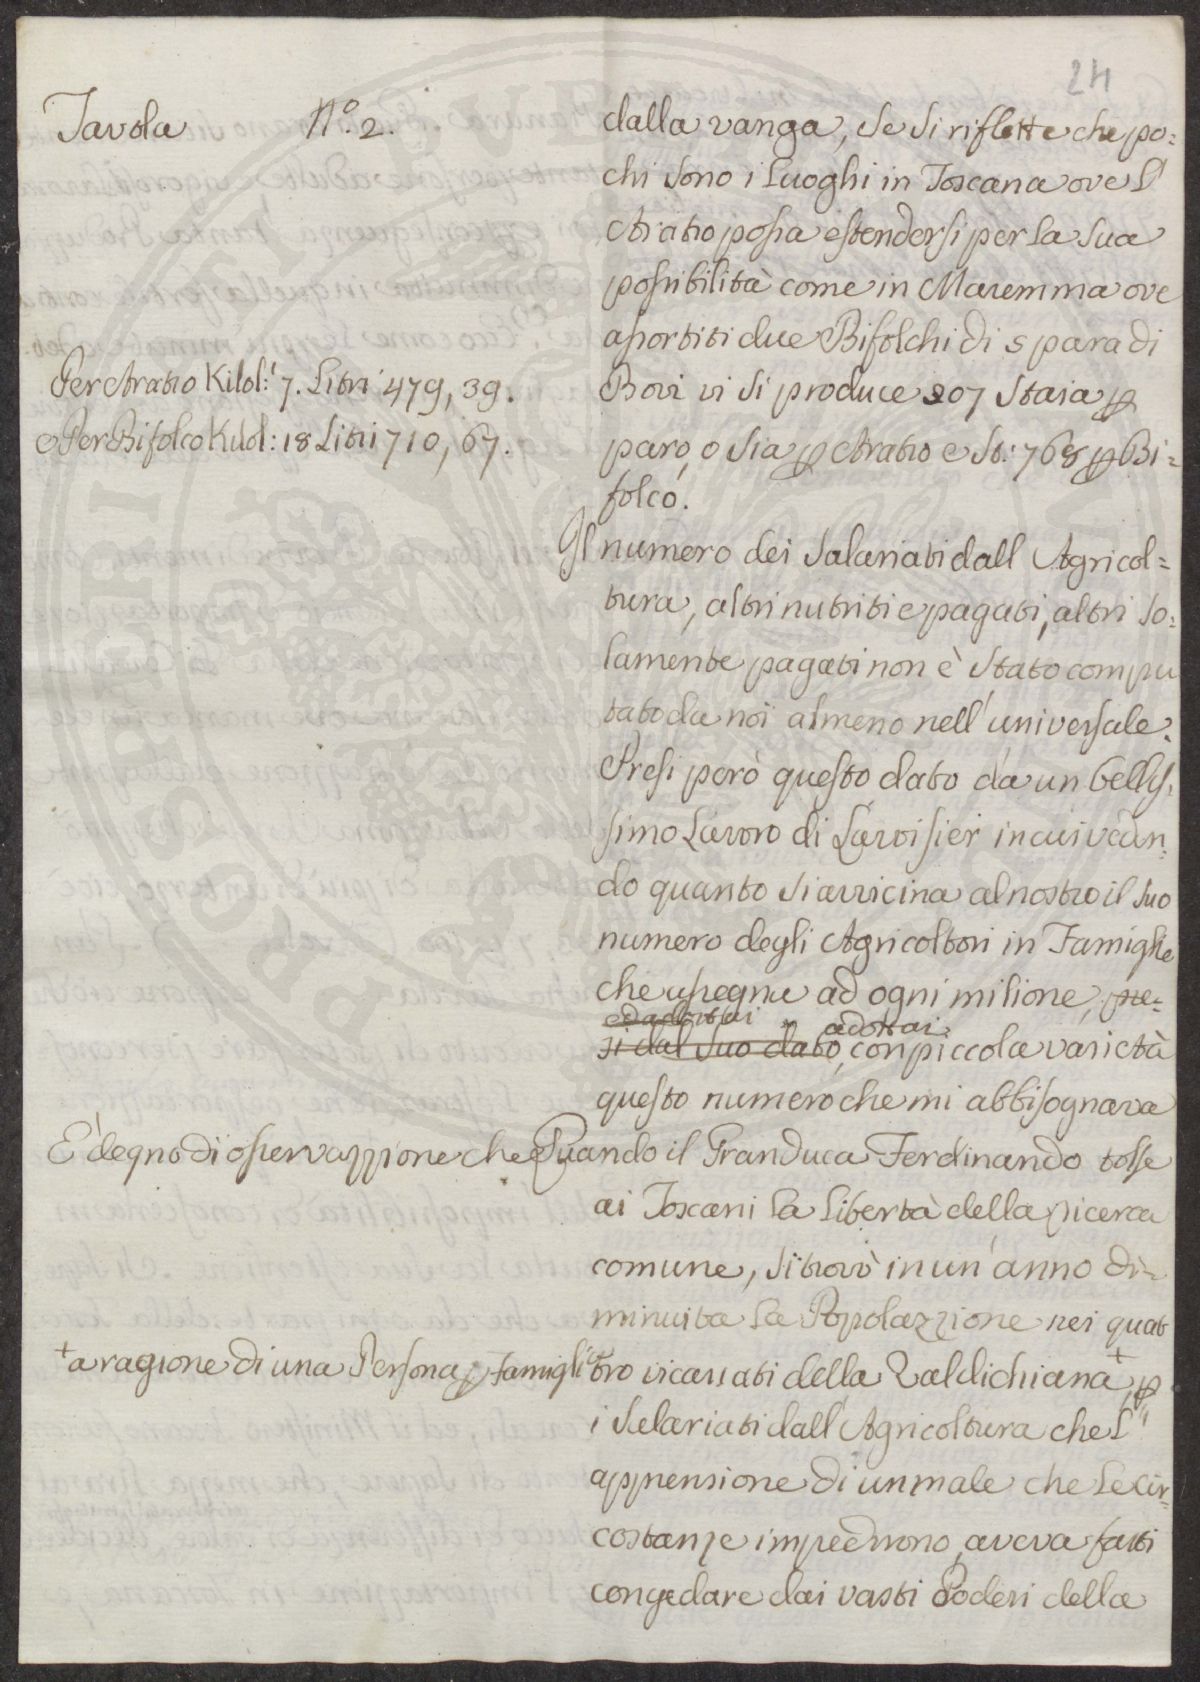 24
Tavola N.º 2.
dalla vanga, se si riflette che po=
chi sono i Luoghi in Toscana ove L'
Aratro possa estendersi per la sua
possibilità come in Maremma ove
assortiti due Bifolchi di 5 para di
Per Aratro Kilol: 7. Litri 479, 39.
Bovi vi si produce 307 Staia p
e Per Bifolco Kilol: 18 Litri 710, 67.
paro, o sia p Aratro e St: 768 p Bi=
folco.
Il numero dei Salariati dall Agricol=
tura, altri nutriti e pagati, altri so=
lamente pagati non è stato compu
tato da noi almeno nell'universale.
Presi però questo dato da un bellis,
simo Lavoro di Lavoisier in cui vedn=
do quanto si avvicina al nostro il suo
numero degli Agricoltori in Famiglie
che assegna ad ogni milione, pre=
ed adottai adottai
si dal suo dato, con piccola varietà
questo numero che mi abbisognava
E' degno di osservazzione che Quando il Granduca Ferdinando tolse
ai Toscani la Libertà della ricerca
comune, si trovò in un'anno di=
minuita la Popolazzione nei quat
+ a ragione di una Persona p Famiglia
tro vicariati della Valdichiana +, p
i Salariati dall'Agricoltura che L'
apprensione di un male che le cir=
costanze impedirono, aveva fatti
congedare dai vasti Poderi della